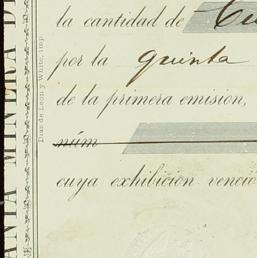 la cantidad de
por la quinta
de la primera emision,
núm
cuya exhibicion venció
Diaz de Leon y White, imp.
ANTA MINERA DE